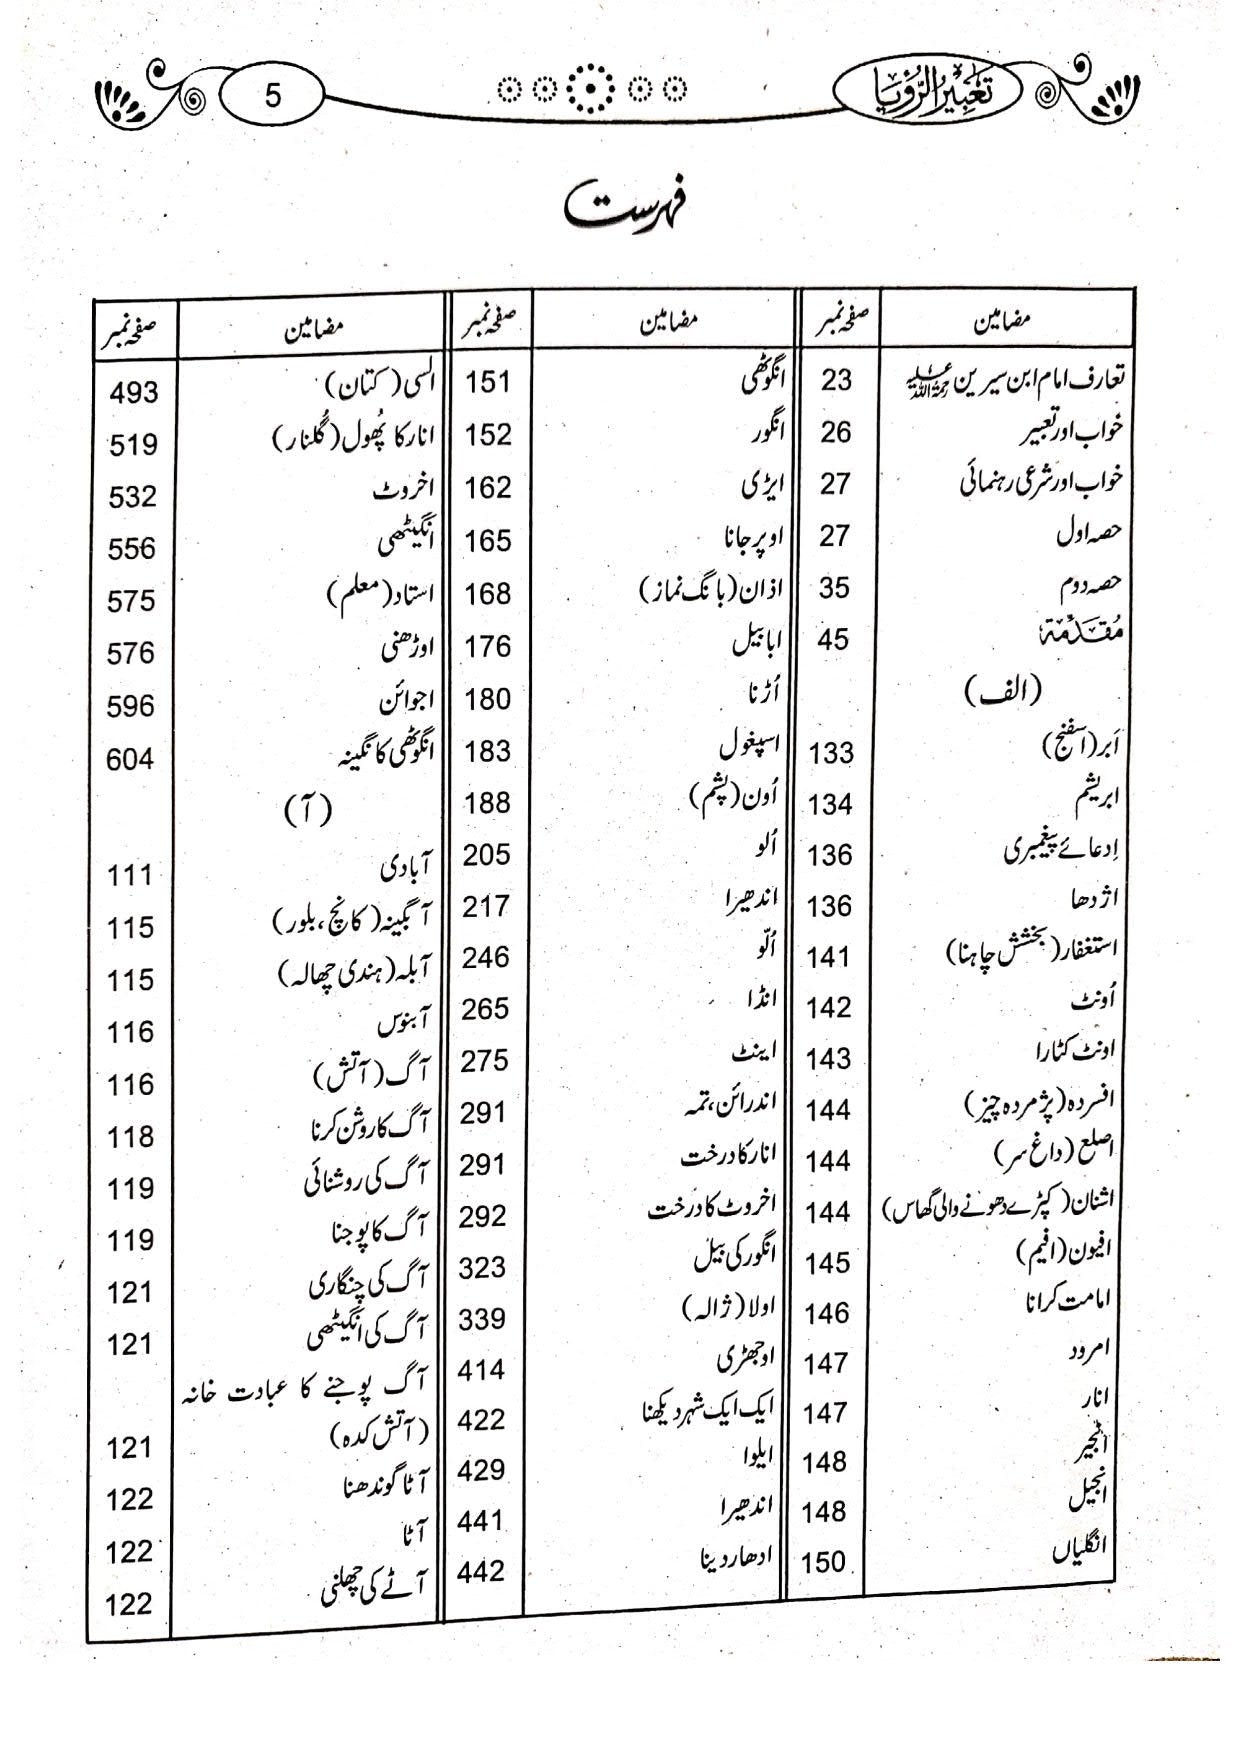 تعبیر الرؤیا
5
فہرست
مضامین صفحہ نمبر
تعارف امام ابن سیرین رحمۃ اللہ علیہ 23
خواب اور تعبیر 26
خواب اور شرعی رہنمائی 27
حصہ اول 27
حصہ دوم 35
مُقَدِّمَۃ 45
(الف)
اَبر (اسفنج) 133
ابریشم 134
اِدعائے پیغمبری 136
اژدھا 136
استغفار (بخشش چاہنا) 141
اُونٹ 142
اونٹ کٹارا 143
افسردہ (پژمردہ چیز) 144
اصلع (داغ سر) 144
اشنان (کپڑے دھونے والی گھاس) 144
افیون (افیم) 145
امامت کرانا 146
امرود 147
انار 147
انجیر 148
انجیل 148
انگلیاں 150
مضامین صفحہ نمبر
انگوٹھی 151
انگور 152
ایڑی 162
اوپر جانا 165
اذان (بانگ نماز) 168
ابابیل 176
اُڑنا 180
اسپغول 183
اُون (پشم) 188
اُلو 205
اندھیرا 217
اُلّو 246
انڈا 265
اینٹ 275
اندرائن، تمہ 291
انار کا درخت 291
اخروٹ کا درخت 292
انگور کی بیل 323
اولا (ژالہ) 339
اوجھڑی 414
ایک ایک شہر دیکھنا 422
ایلوا 429
اندھیرا 441
ادھار دینا 442
مضامین صفحہ نمبر
السی (کتان) 493
انار کا پُھول (گُلنار) 519
اخروٹ 532
انگیٹھی 556
استاد (معلم) 575
اوڑھنی 576
اجوائن 596
انگوٹھی کا نگینہ 604
(آ)
آبادی 111
آبگینہ (کانچ، بلور) 115
آبلہ (ہندی چھالہ) 115
آبنوس 116
آگ (آتش) 116
آگ کا روشن کرنا 118
آگ کی روشنائی 119
آگ کا پوجنا 119
آگ کی چنگاری 121
آگ کی انگیٹھی 121
آگ پوجنے کا عبادت خانہ
(آتش کدہ) 121
آٹا گوندھنا 122
آٹا 122
آٹے کی چھلنی 122